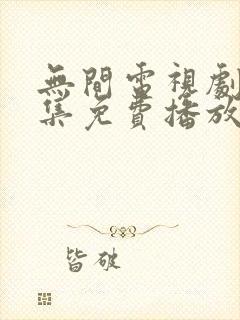 無間電視劇
集免費播放
皆破